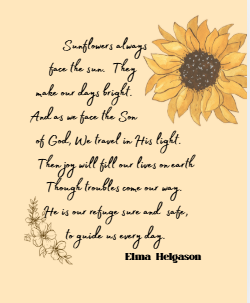 Sunflowers always
face the sun. They
make our days bright.
And as we face the Son
of God, We travel in His light.
Then joy will fill our lives on earth
Though troubles come our way.
He is our refuge sure and safe,
to guide us every day.
Elma Helgason